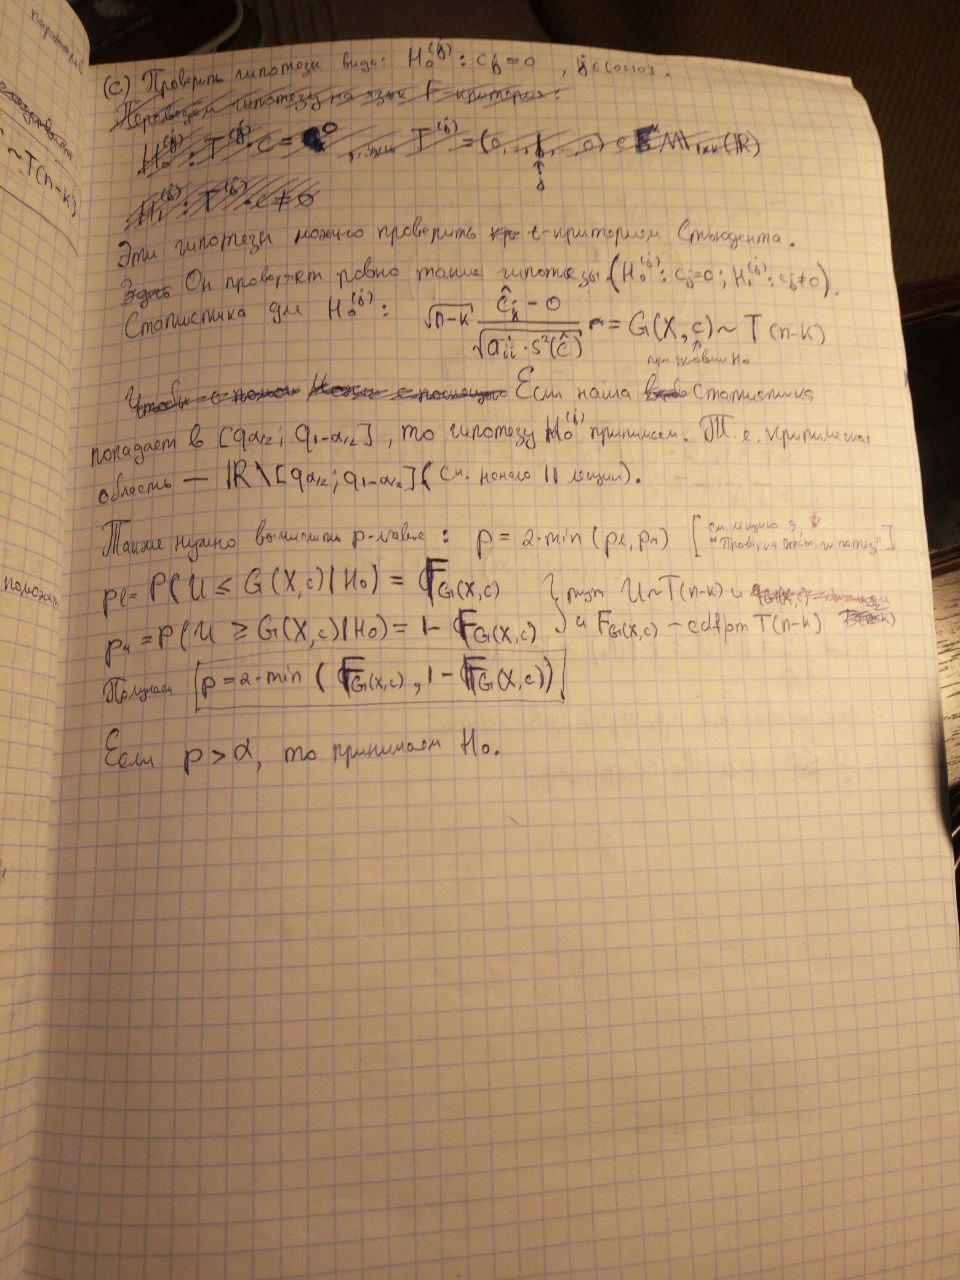 параметров
~T(n-k)
(c) Проверить гипотезы вида: H₀^(j): c_j = 0 , j ∈ {0..10}.
Переведём гипотезу на язык F-критерия:
H₀^(j): T^(j)·c = 0, T^(j) = (0,..,1,..,0) ∈ M₁ₓₖ(ℝ)
↑
j
H₁^(j): T^(j)·c ≠ 0
Эти гипотезы можно проверить t-критерием Стьюдента.
Здесь Он проверяет ровно такие гипотезы (H₀^(j): c_j=0; H₁^(j): c_j≠0).
Статистика для H₀^(j): √(n-k) (ĉ_j - 0)/√(a_ii·s²(ĉ)) = G(X,c) ~ T(n-k)
при условии H₀
Если наша статистика
попадает в [q_α/2; q_1-α/2], то гипотезу H₀^(j) принимаем. Т.е. критическая
область — ℝ\[q_α/2; q_1-α/2] (см. начало 11 лекции).
Также нужно вычислить p-value: p = 2·min(pl, pr) [см. лекцию 9,
"Проверка стат. гипотез"]
pl = P(U ≤ G(X,c)|H₀) = F_G(X,c) } тут U~T(n-k) и
pr = P(U ≥ G(X,c)|H₀) = 1 - F_G(X,c) и F_G(X,c) - cdf от T(n-k)
Получаем p = 2·min(F_G(X,c), 1 - F_G(X,c))
Если p > α, то принимаем H₀.